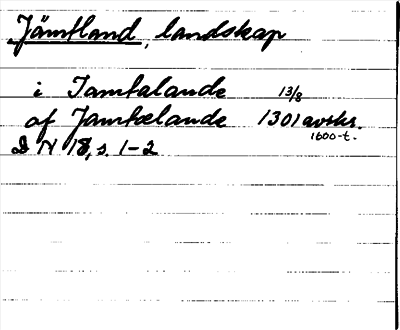 Jämtland, landskap
i Jamtalande 13/8
af Jamtalande 1301 avskr.
1600-t.
D N 18, s. 1-2